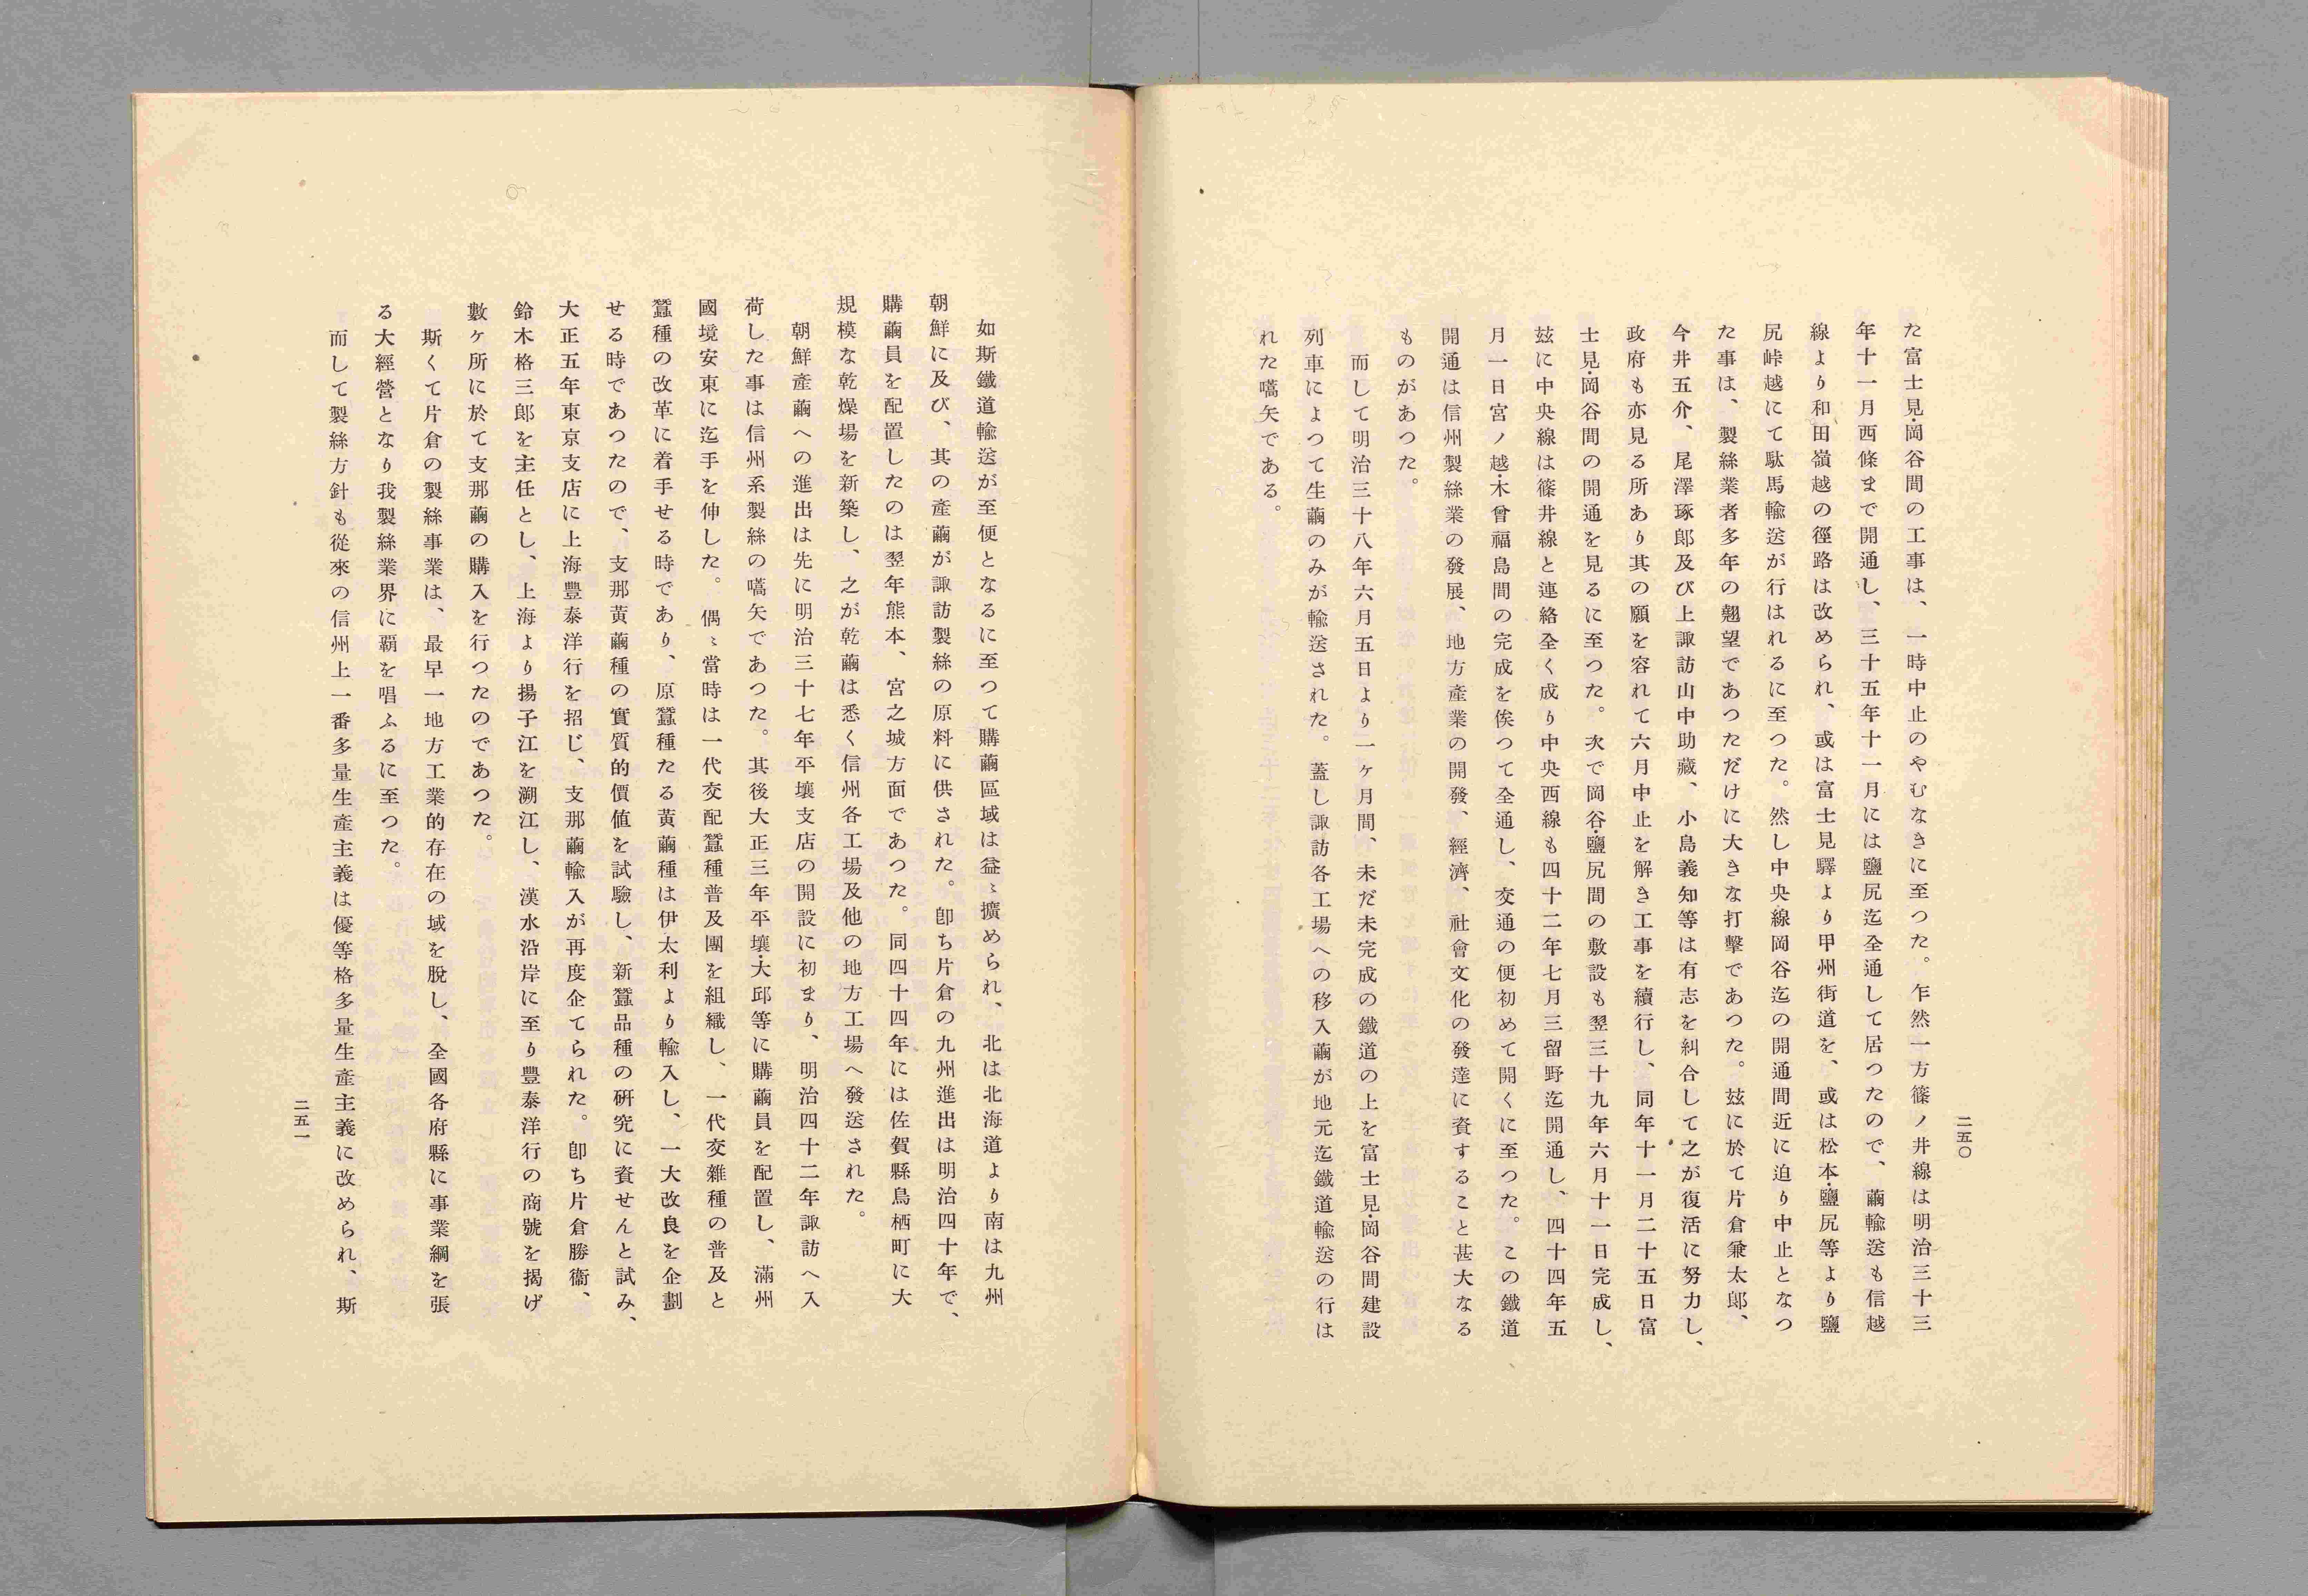 た富士見・岡谷間の工事は、一時中止のやむなきに至つた。乍然一方篠ノ井線は明治三十三
年十一月西條まで開通し、三十五年十一月には鹽尻迄全通して居つたので、繭輸送も信越
線より和田嶺越の徑路は改められ、或は富士見驛より甲州街道を、或は松本・鹽尻等より鹽
尻峠越にて駄馬輸送が行はれるに至つた。然し中央線岡谷迄の開通間近に迫り中止となつ
た事は、製絲業者多年の翹望であつただけに大きな打擊であつた。玆に於て片倉兼太郎、
今井五介、尾澤琢郎及び上諏訪山中助藏、小島義知等は有志を糾合して之が復活に努力し、
政府も亦見る所あり其の願を容れて六月中止を解き工事を續行し、同年十一月二十五日富
士見・岡谷間の開通を見るに至つた。次で岡谷・鹽尻間の敷設も翌三十九年六月十一日完成し、
玆に中央線は篠井線と連絡全く成り中央西線も四十二年七月三留野迄開通し、四十四年五
月一日宮ノ越・木曾福島間の完成を俟つて全通し、交通の便初めて開くに至つた。この鐵道
開通は信州製絲業の發展、地方產業の開發、經濟、社會文化の發達に資すること甚大なる
ものがあつた。
而して明治三十八年六月五日より一ヶ月間、未だ未完成の鐵道の上を富士見・岡谷間建設
列車によつて生繭のみが輸送された。蓋し諏訪各工場への移入繭が地元迄鐵道輸送の行は
れた嚆矢である。
二五〇
如斯鐵道輸送が至便となるに至つて購繭區域は益〻擴められ、北は北海道より南は九州
朝鮮に及び、其の產繭が諏訪製絲の原料に供された。卽ち片倉の九州進出は明治四十年で、
購繭員を配置したのは翌年熊本、宮之城方面であつた。同四十四年には佐賀縣鳥栖町に大
規模な乾燥場を新築し、之が乾繭は悉く信州各工場及他の地方工場へ發送された。
朝鮮產繭への進出は先に明治三十七年平壤支店の開設に初まり、明治四十二年諏訪へ入
荷した事は信州系製絲の嚆矢であつた。其後大正三年平壤・大邱等に購繭員を配置し、滿州
國境安東に迄手を伸した。偶〻當時は一代交配蠶種普及團を組織し、一代交雜種の普及と
蠶種の改革に着手せる時であり、原蠶種たる黃繭種は伊太利より輸入し、一大改良を企劃
せる時であつたので、支那黃繭種の實質的價値を試驗し、新蠶品種の研究に資せんと試み、
大正五年東京支店に上海豐泰洋行を招じ、支那繭輸入が再度企てられた。卽ち片倉勝衞、
鈴木格三郎を主任とし、上海より揚子江を溯江し、漢水沿岸に至り豐泰洋行の商號を揭げ
數ヶ所に於て支那繭の購入を行つたのであつた。
斯くて片倉の製絲事業は、最早一地方工業的存在の域を脫し、全國各府縣に事業綱を張
る大經營となり我製絲業界に覇を唱ふるに至つた。
而して製絲方針も從來の信州上一番多量生產主義は優等格多量生產主義に改められ、斯
二五一